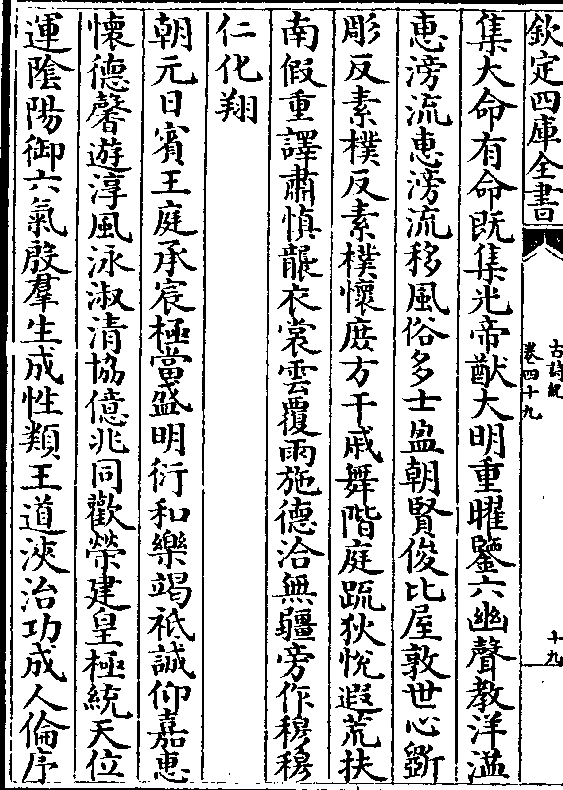 欽定四庫全書
古詩紀
卷四十九
十九
集大命有命既集光帝猷大明重曜鑒六幽聲教洋溢
惠滂流惠滂流移風俗多士盈朝賢俊比屋敦世心斵
彫反素樸反素樸懷庶方干戚舞階庭疏狄恱遐荒扶
南假重譯肅慎襲衣裳雲覆雨施德洽無疆旁作穆穆
仁化翔
朝元日賓王庭承宸極當盛明衍和樂竭祗誠仰嘉惠
懷德馨遊淳風泳淑清協億兆同歡榮建皇極統天位
運隂陽御六氣殷羣生成性類王道浹治功成人倫序